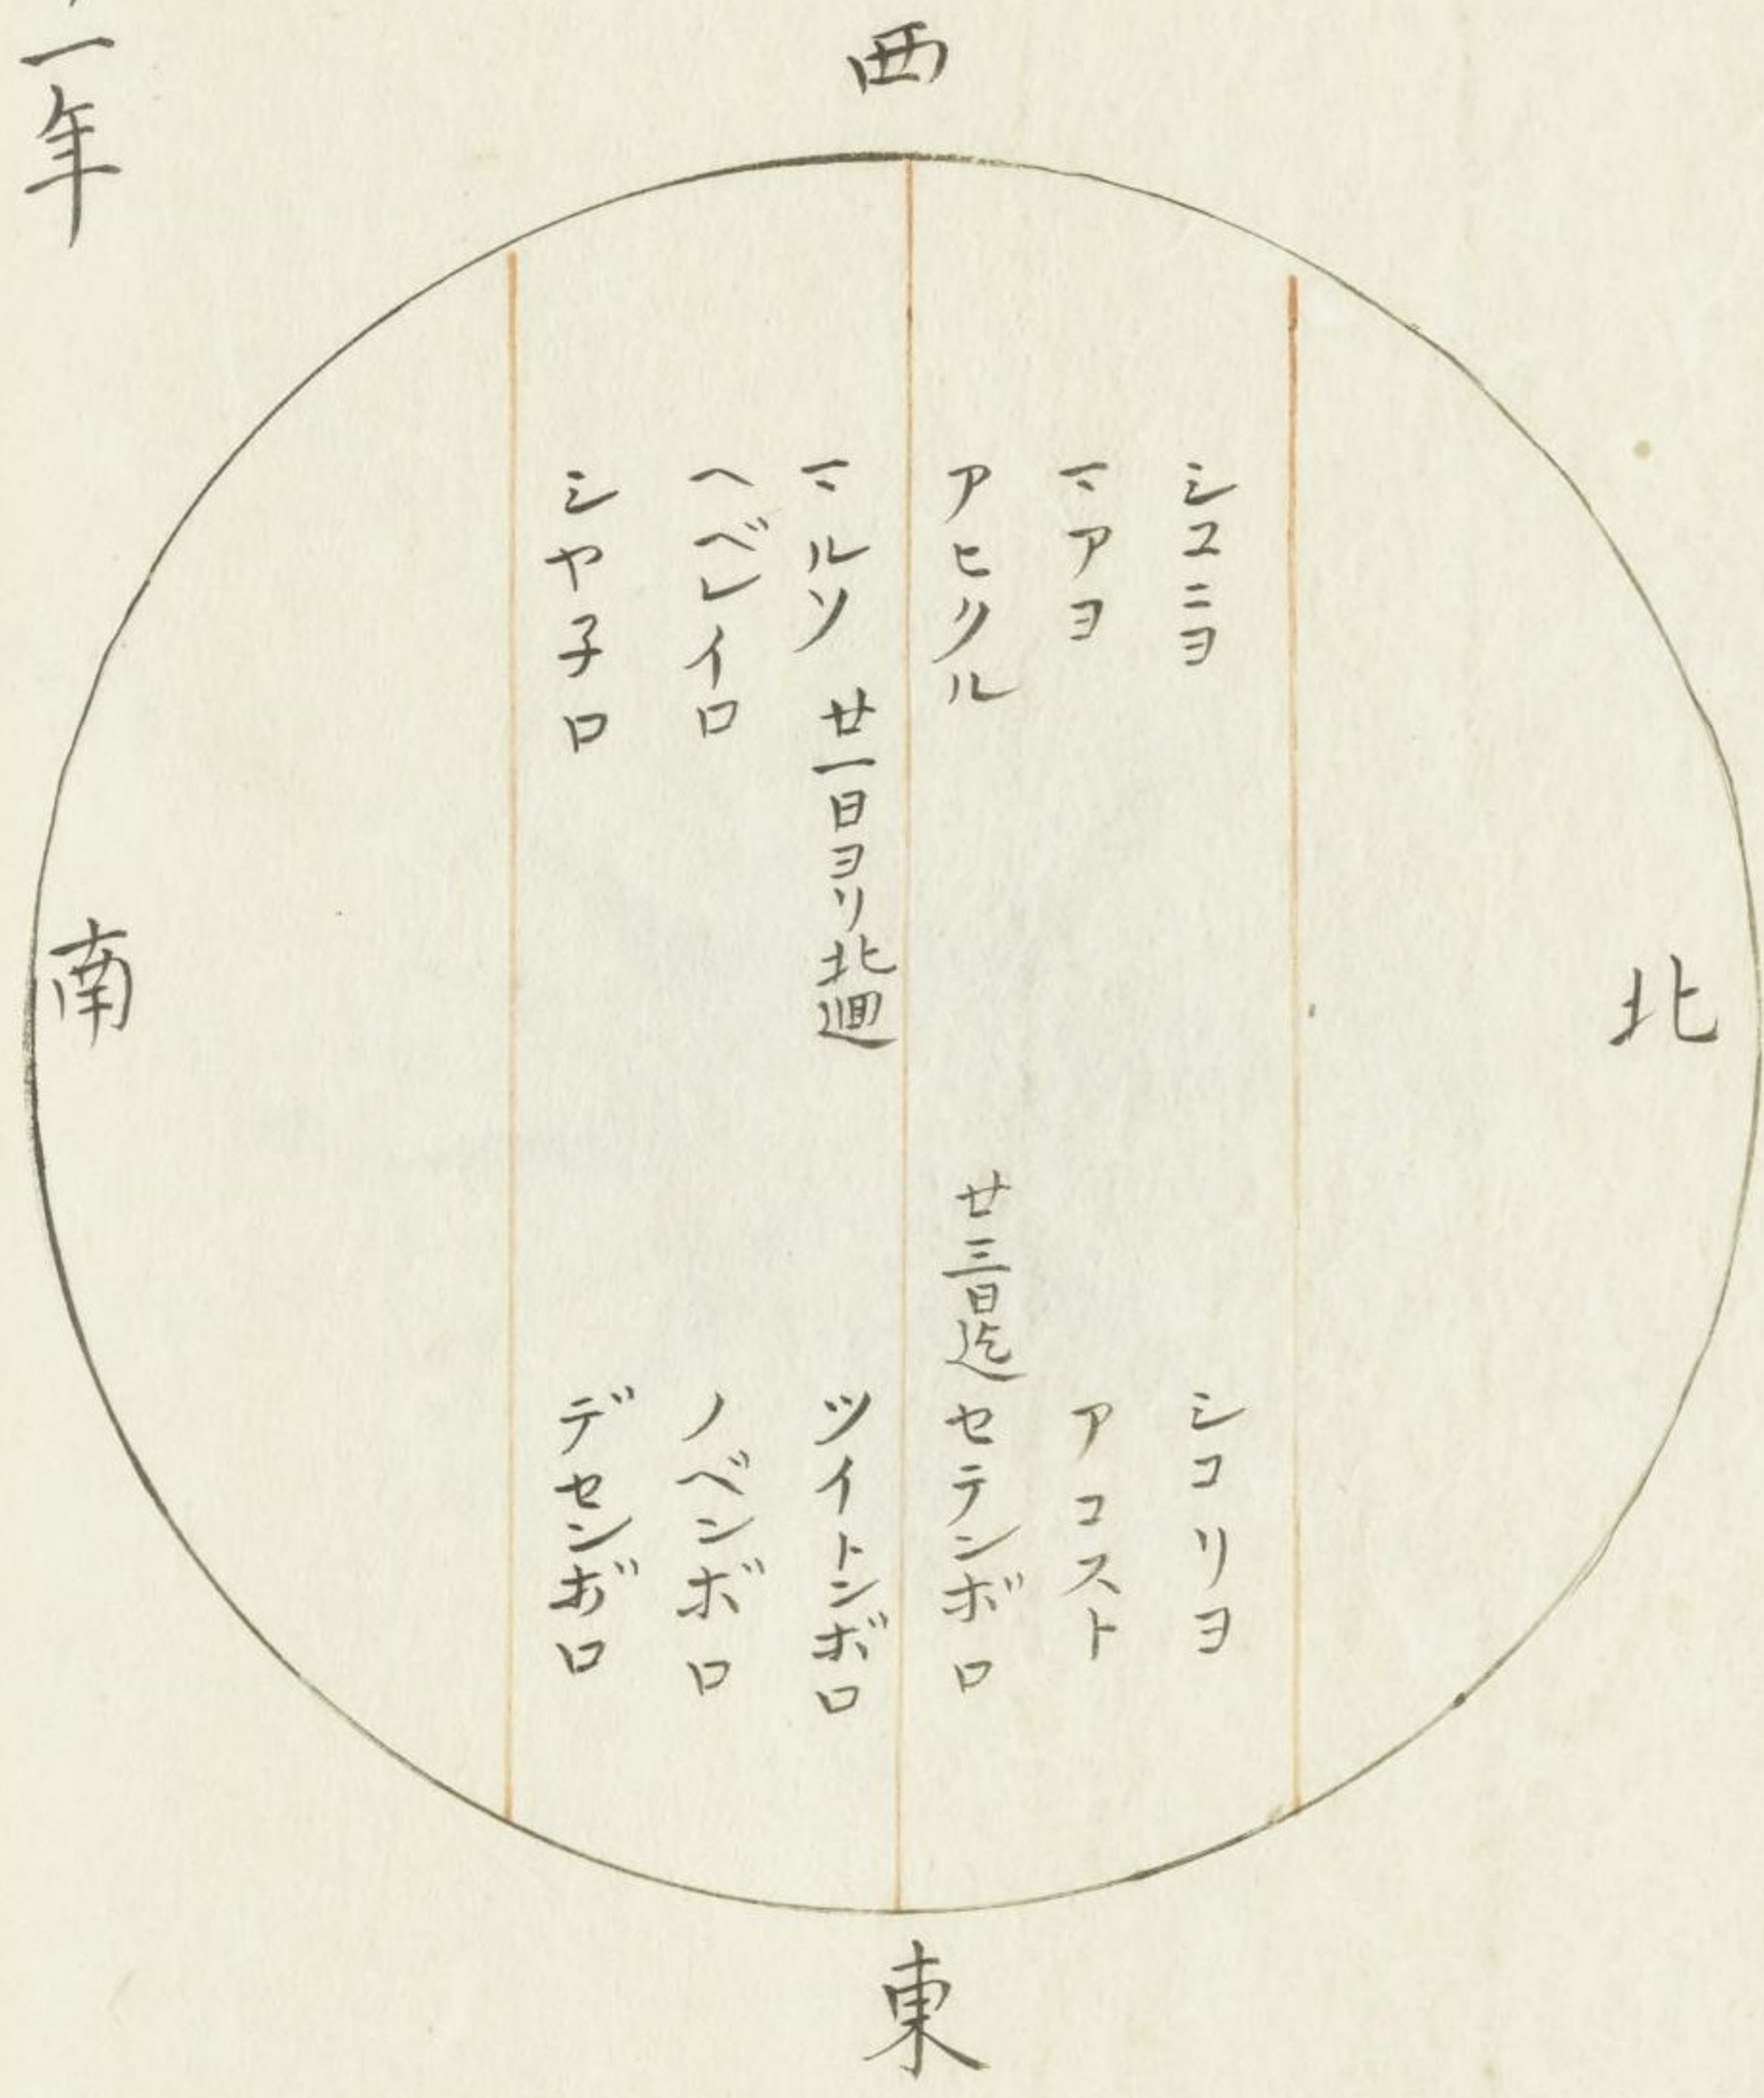 西
北
シユニヨ
マアヨ
アヒリル
マルソ 廿一日ヨリ北廻
ヘベレイロ
シヤ子ロ
シコリヨ
アコスト
廿三日迄 セテンボロ
ツイトンボロ
ノベンボロ
デセンボロ
南
東
一年